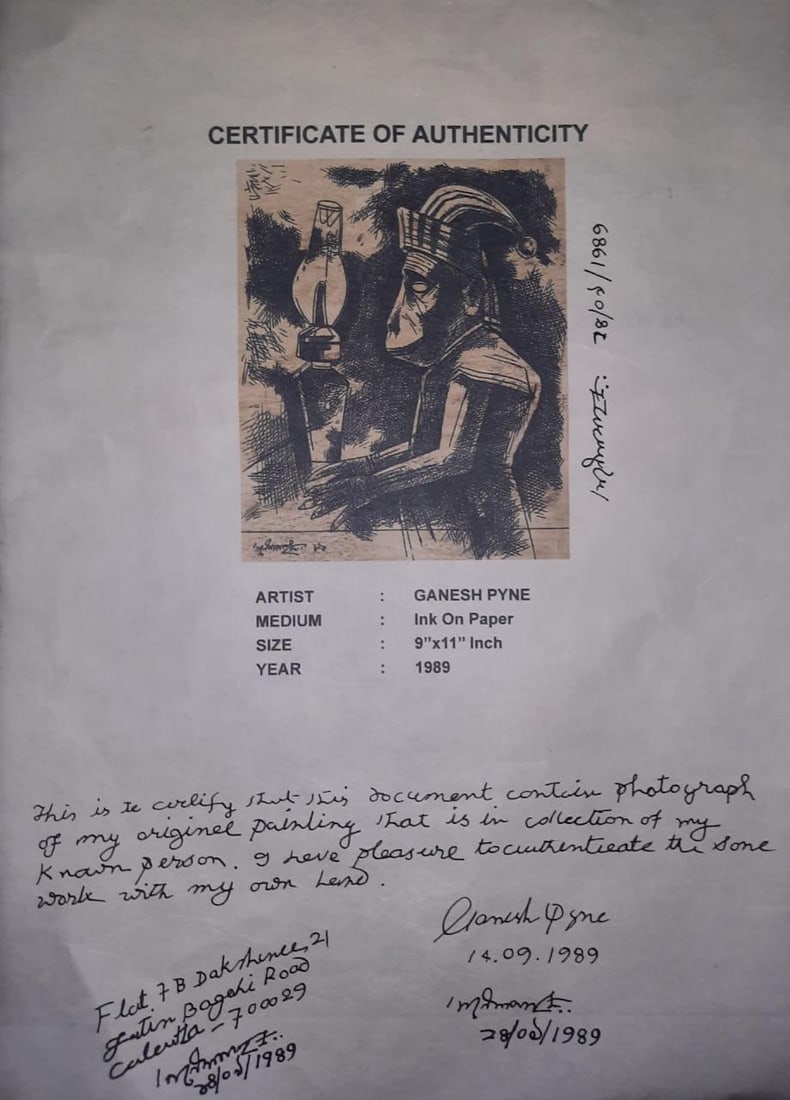 CERTIFICATE OF AUTHENTICITY
ARTIST : GANESH PYNE
MEDIUM : Ink On Paper
SIZE : 9”x11” Inch
YEAR : 1989
This is to certify that this document contain photograph
of my original painting that is in collection of my
known person. I have pleasure to authenticate the same
work with my own hand.
Ganesh Pyne
14.09.1989
Flat. 7B Dakshinee, 21
Jatin Bagchi Road
Calcutta - 700029